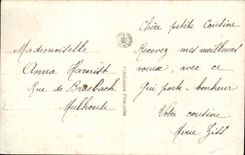 Chère petite Cousine
Recevez mes meilleurs
voeux, avec ce
qui porte-bonheur
Votre cousine
Marie Ziss
Mademoiselle
Anna
Rue de Brubach
Mulhouse